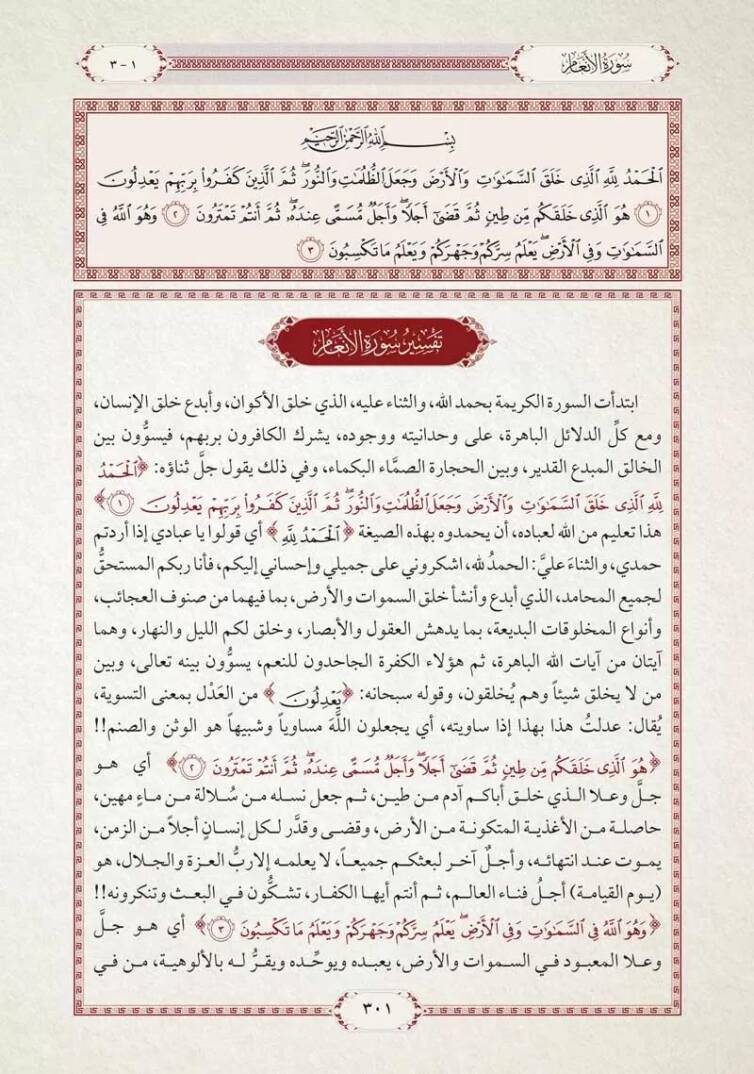 سُورَةُ الأَنْعَامِ
١ - ٣
بِسْمِ اللَّهِ الرَّحْمَٰنِ الرَّحِيمِ
الْحَمْدُ لِلَّهِ الَّذِى خَلَقَ السَّمَٰوَٰتِ وَالْأَرْضَ وَجَعَلَ الظُّلُمَٰتِ وَالنُّورَ ۖ ثُمَّ الَّذِينَ كَفَرُوا بِرَبِّهِمْ يَعْدِلُونَ
١ هُوَ الَّذِى خَلَقَكُم مِّن طِينٍ ثُمَّ قَضَىٰٓ أَجَلًا ۖ وَأَجَلٌ مُّسَمًّى عِندَهُۥ ۖ ثُمَّ أَنتُمْ تَمْتَرُونَ ٢ وَهُوَ اللَّهُ فِى
السَّمَٰوَٰتِ وَفِى الْأَرْضِ ۖ يَعْلَمُ سِرَّكُمْ وَجَهْرَكُمْ وَيَعْلَمُ مَا تَكْسِبُونَ ٣
تَفْسِيرُ سُورَةِ الأَنْعَامِ
ابتدأت السورة الكريمة بحمد الله، والثناء عليه، الذي خلق الأكوان، وأبدع خلق الإنسان،
ومع كلِّ الدلائل الباهرة، على وحدانيته ووجوده، يشرك الكافرون بربهم، فيسوُّون بين
الخالق المبدع القدير، وبين الحجارة الصمَّاء البكماء، وفي ذلك يقول جلَّ ثناؤه: ﴿الْحَمْدُ
لِلَّهِ الَّذِى خَلَقَ السَّمَٰوَٰتِ وَالْأَرْضَ وَجَعَلَ الظُّلُمَٰتِ وَالنُّورَ ۖ ثُمَّ الَّذِينَ كَفَرُوا بِرَبِّهِمْ يَعْدِلُونَ ١﴾
هذا تعليم من الله لعباده، أن يحمدوه بهذه الصيغة ﴿الْحَمْدُ لِلَّهِ﴾ أي قولوا يا عبادي إذا أردتم
حمدي، والثناءَ عليَّ: الحمدُ لله، اشكروني على جميلي وإحساني إليكم، فأنا ربكم المستحقُّ
لجميع المحامد، الذي أبدع وأنشأ خلق السموات والأرض، بما فيهما من صنوف العجائب،
وأنواع المخلوقات البديعة، بما يدهش العقول والأبصار، وخلق لكم الليل والنهار، وهما
آيتان من آيات الله الباهرة، ثم هؤلاء الكفرة الجاحدون للنعم، يسوُّون بينه تعالى، وبين
من لا يخلق شيئاً وهم يُخلقون، وقوله سبحانه: ﴿يَعْدِلُونَ﴾ من العَدْل بمعنى التسوية،
يُقال: عدلتُ هذا بهذا إذا ساويته، أي يجعلون اللَّهَ مساوياً وشبيهاً هو الوثن والصنم!!
﴿هُوَ الَّذِى خَلَقَكُم مِّن طِينٍ ثُمَّ قَضَىٰٓ أَجَلًا ۖ وَأَجَلٌ مُّسَمًّى عِندَهُۥ ۖ ثُمَّ أَنتُمْ تَمْتَرُونَ ٢﴾ أي هو
جلَّ وعلا الذي خلق أباكم آدم من طين، ثم جعل نسله من سُلالة من ماءٍ مهين،
حاصلة من الأغذية المتكونة من الأرض، وقضى وقدَّر لكل إنسانٍ أجلاً من الزمن،
يموت عند انتهائه، وأجلٌ آخر لبعثكم جميعاً، لا يعلمه إلا ربُّ العزة والجلال، هو
(يوم القيامة) أجلُ فناء العالم، ثم أنتم أيها الكفار، تشكُّون في البعث وتنكرونه!!
﴿وَهُوَ اللَّهُ فِى السَّمَٰوَٰتِ وَفِى الْأَرْضِ ۖ يَعْلَمُ سِرَّكُمْ وَجَهْرَكُمْ وَيَعْلَمُ مَا تَكْسِبُونَ ٣﴾ أي هو جلَّ
وعلا المعبود في السموات والأرض، يعبده ويوحِّده ويقرُّ له بالألوهية، من في
٣٠١